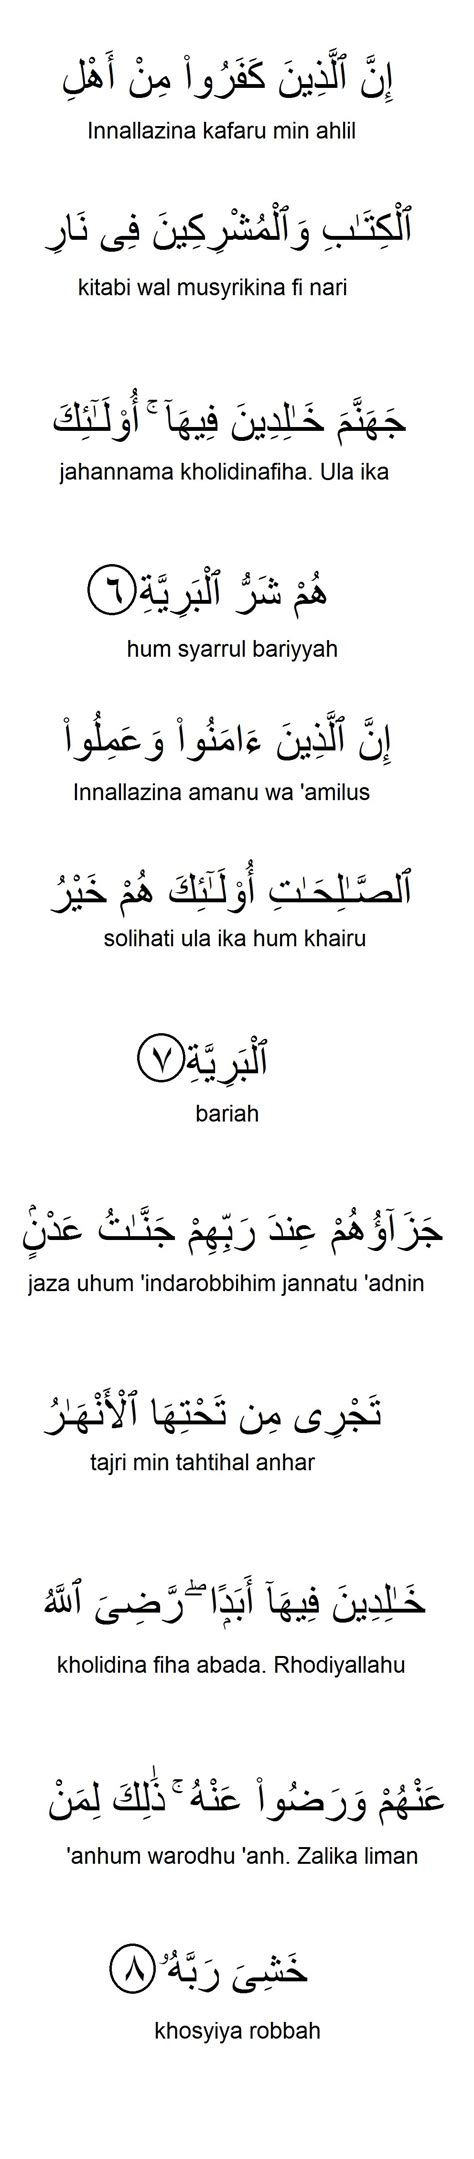 إِنَّ ٱلَّذِينَ كَفَرُوا۟ مِنْ أَهْلِ
Innallazina kafaru min ahlil
ٱلْكِتَـٰبِ وَٱلْمُشْرِكِينَ فِى نَارِ
kitabi wal musyrikina fi nari
جَهَنَّمَ خَـٰلِدِينَ فِيهَآ ۚ أُو۟لَـٰٓئِكَ
jahannama kholidinafiha. Ula ika
هُمْ شَرُّ ٱلْبَرِيَّةِ ٦
hum syarrul bariyyah
إِنَّ ٱلَّذِينَ ءَامَنُوا۟ وَعَمِلُوا۟
Innallazina amanu wa 'amilus
ٱلصَّـٰلِحَـٰتِ أُو۟لَـٰٓئِكَ هُمْ خَيْرُ
solihati ula ika hum khairu
ٱلْبَرِيَّةِ ٧
bariah
جَزَآؤُهُمْ عِندَ رَبِّهِمْ جَنَّـٰتُ عَدْنٍۢ
jaza uhum 'indarobbihim jannatu 'adnin
تَجْرِى مِن تَحْتِهَا ٱلْأَنْهَـٰرُ
tajri min tahtihal anhar
خَـٰلِدِينَ فِيهَآ أَبَدًۭا ۖ رَّضِىَ ٱللَّهُ
kholidina fiha abada. Rhodiyallahu
عَنْهُمْ وَرَضُوا۟ عَنْهُ ۚ ذَٰلِكَ لِمَنْ
'anhum warodhu 'anh. Zalika liman
خَشِىَ رَبَّهُۥ ٨
khosyiya robbah